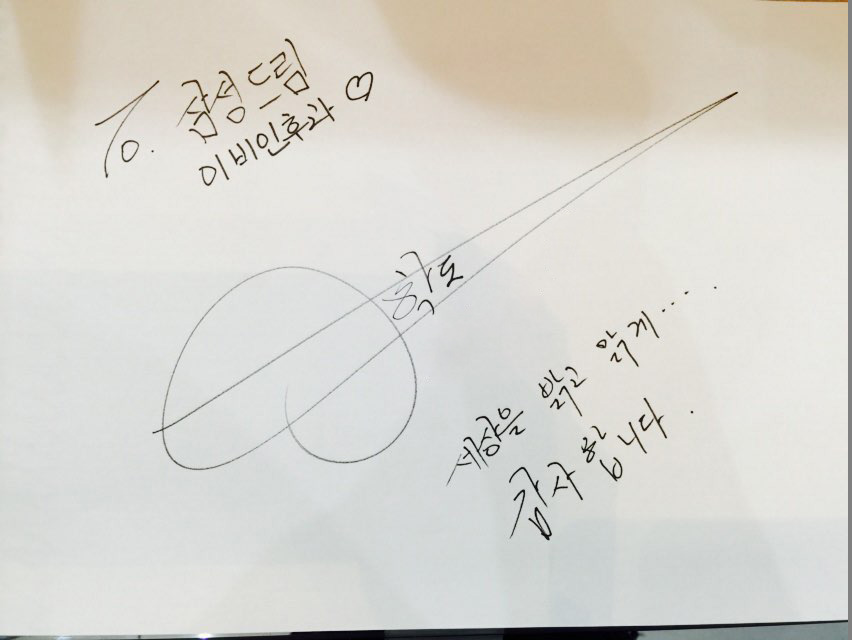 To. 삼성드림
이비인후과 ♡
학도
세상을 밝고 맑게....
감사합니다.